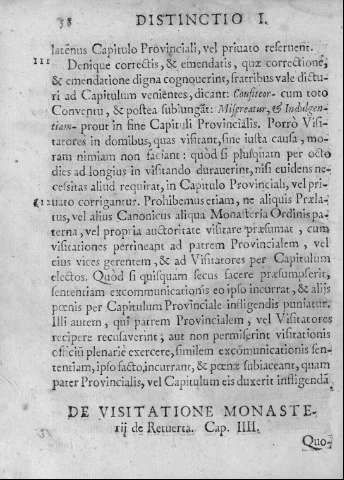 38 DISTINCTIO I.
latenus Capitulo Prouinciali, vel priuato reseruent.
III Denique correctis, & emendatis, quæ correctione,
& emendatione digna cognouerint, fratribus vale dictu-
ri ad Capitulum venientes, dicant: Confiteor- cum toto
Conventu, & postea subiungāt: Misereatur, & Indulgen-
tiam- prout in fine Capituli Provincialis. Porrò Visi-
tatores in domibus, quas visitant, sine iusta causa, mo-
ram nimiam non faciant: quòd si plusquam per octo
dies ad longius in visitando durauerint, nisi euidens ne-
cessitas aliud requirat, in Capitulo Provinciali, vel pri-
uato corrigantur. Prohibemus etiam, ne aliquis Præla-
tus, vel alius Canonicus aliqua Monasteria Ordinis pa-
terna, vel propria auctoritate visitare præsumat, cum
visitationes pertineant ad patrem Provincialem, vel
eius vices gerentem, & ad Visitatores per Capitulum
electos. Quòd si quisquam secus facere præsumpserit,
sententiam excommunicationis eo ipso incurrat, & alijs
pœnis per Capitulum Provinciale infligendis puniatur.
Illi autem, qui patrem Provincialem, vel Visitatores
recipere recusaverint, aut non permiserint visitationis
officiū plenariè exercere, similem excōmunicationis sen-
tentiam, ipso facto, incurrant, & pœnæ subiaceant, quam
pater Provincialis, vel Capitulum eis duxerit infligendā.
DE VISITATIONE MONASTE-
rij de Retuerta. Cap. IIII.
Quo-